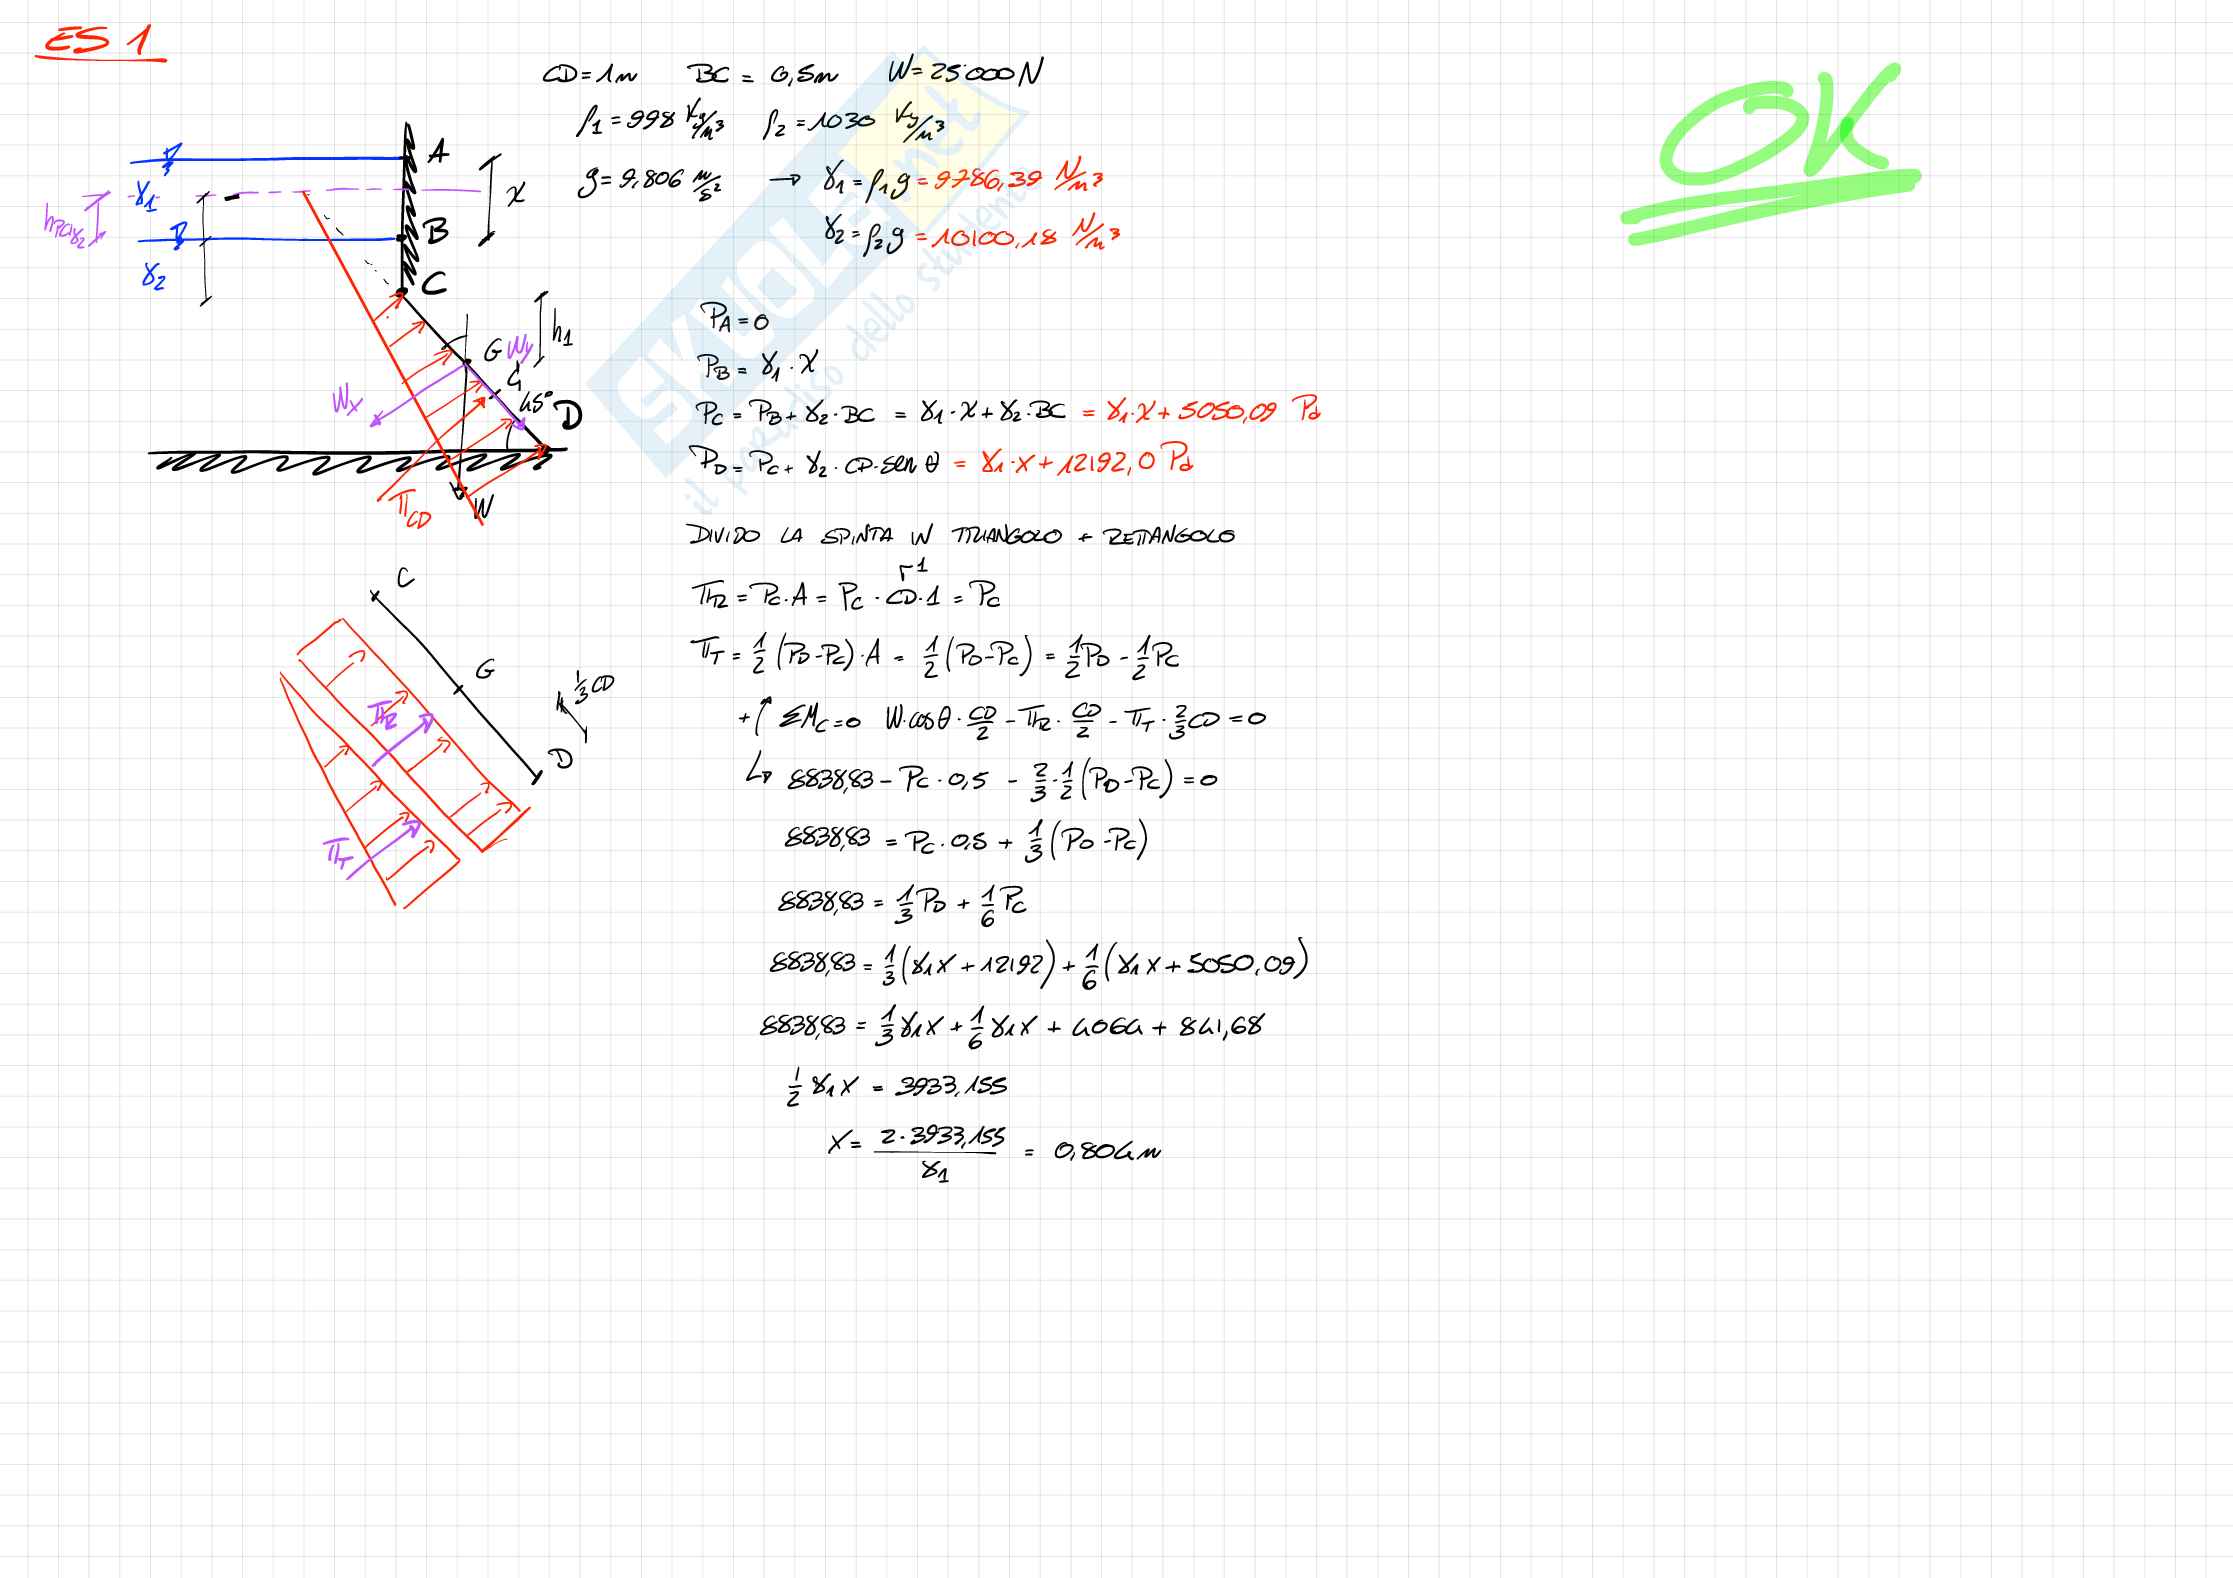 ES 1
CD = 1m BC = 0,5m W = 25'000 N
ρ1 = 998 Kg/m³ ρ2 = 1030 Kg/m³
g = 9,806 m/s² → γ1 = ρ1g = 9786,39 N/m³
γ2 = ρ2g = 10100,18 N/m³
OK
A
γ1
x
hPCIγ2
B
γ2
C
h1
G Wy
G'
Wx
45°
D
πCD
W
PA = 0
PB = γ1 · x
PC = PB + γ2 · BC = γ1 · x + γ2 · BC = γ1 · x + 5050,09 Pa
PD = PC + γ2 · CD · sen θ = γ1 · x + 12192,0 Pa
DIVIDO LA SPINTA IN TRIANGOLO + RETTANGOLO
πR = PC · A = PC · CD · 1 = PC
1
πT = 1/2 (PD - PC) · A = 1/2 (PD - PC) = 1/2 PD - 1/2 PC
+ ΣMC = 0 W · cosθ · CD/2 - πR · CD/2 - πT · 2/3 CD = 0
↳ 8838,83 - PC · 0,5 - 2/3 · 1/2 (PD - PC) = 0
8838,83 = PC · 0,5 + 1/3 (PD - PC)
8838,83 = 1/3 PD + 1/6 PC
8838,83 = 1/3 (γ1x + 12192) + 1/6 (γ1x + 5050,09)
8838,83 = 1/3 γ1x + 1/6 γ1x + 4064 + 841,68
1/2 γ1x = 3933,155
x = 2 · 3933,155 / γ1 = 0,804 m
C
G
1/3 CD
D
πR
πT
SKUOLA.net
il paradiso dello studente